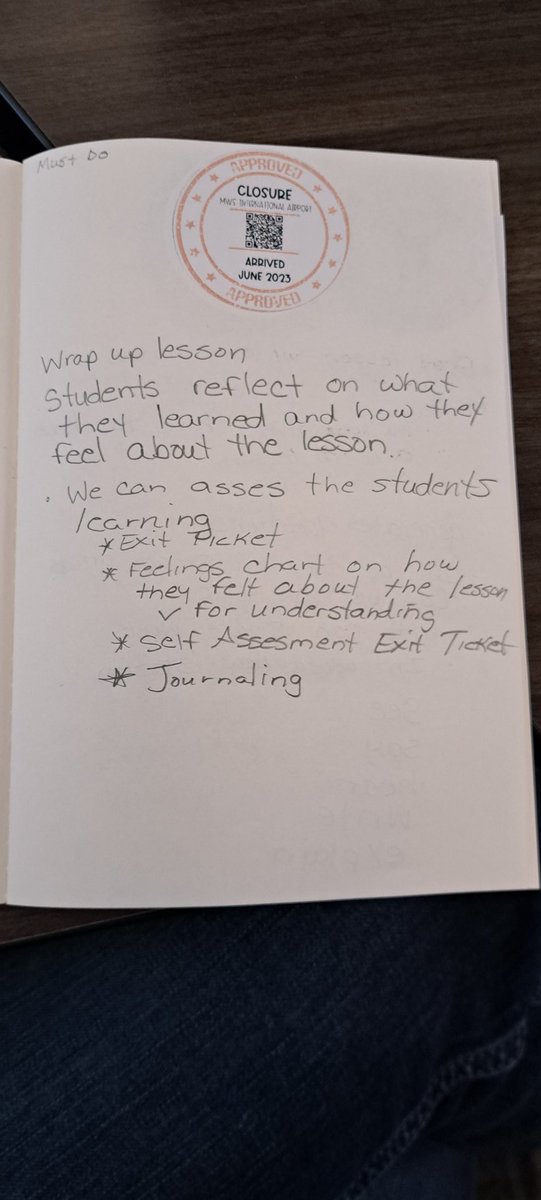 Must Do
APPROVED
CLOSURE
MWS INTERNATIONAL AIRPORT
ARRIVED
JUNE 2023
APPROVED
Wrap up lesson
Students reflect on what
they learned and how they
feel about the lesson.
. We can asses the students
learning
* Exit Picket
* Feelings chart on how
they felt about the lesson
✓ for understanding
* Self Assesment Exit Ticket
* Journaling